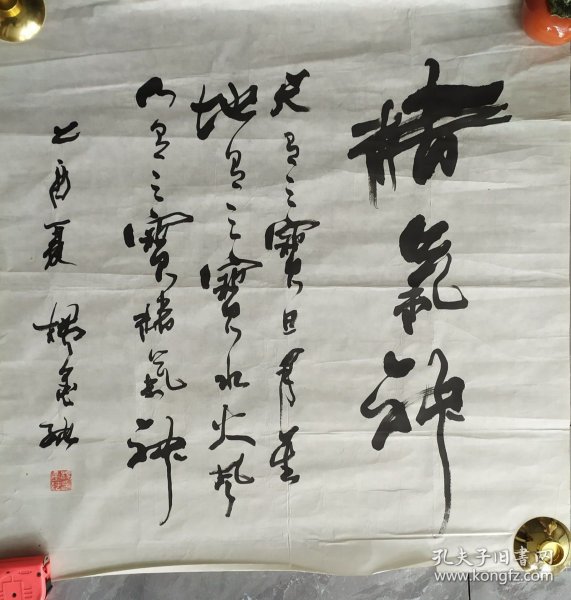 精氣神
天有三寶日月星
地有三寶水火風
人有三寶精氣神
乙酉夏
孔夫子旧书网
www.kongfz.com